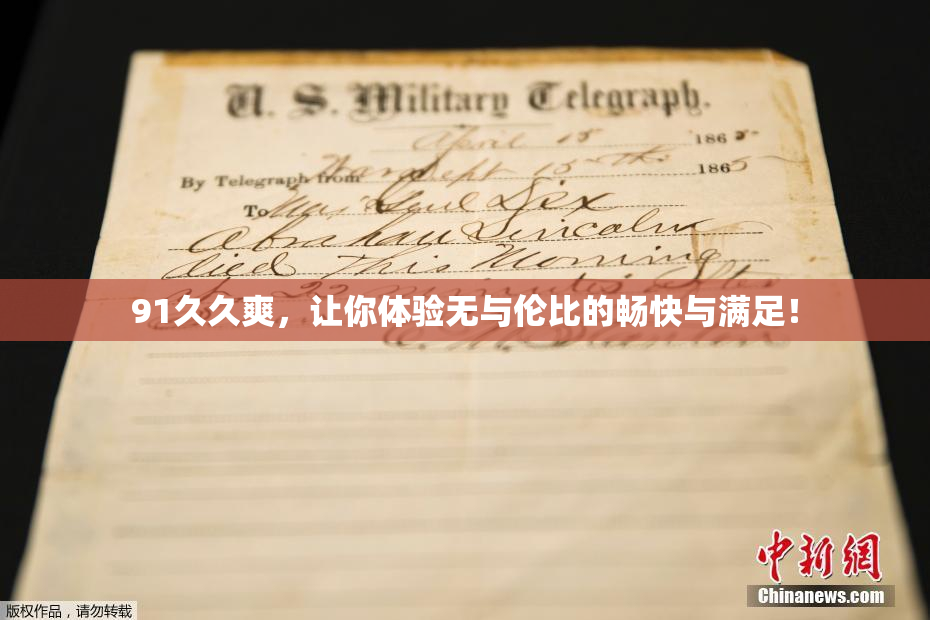 U. S. Military Telegraph.
April 15 1865
By Telegraph from War Dept 15th 1865
To Maj Genl Dix
Abraham Lincoln
died This Morning
at 22 minutes after
91久久爽，让你体验无与伦比的畅快与满足！
E. M. Stanton
中新网
Chinanews.com
版权作品，请勿转载